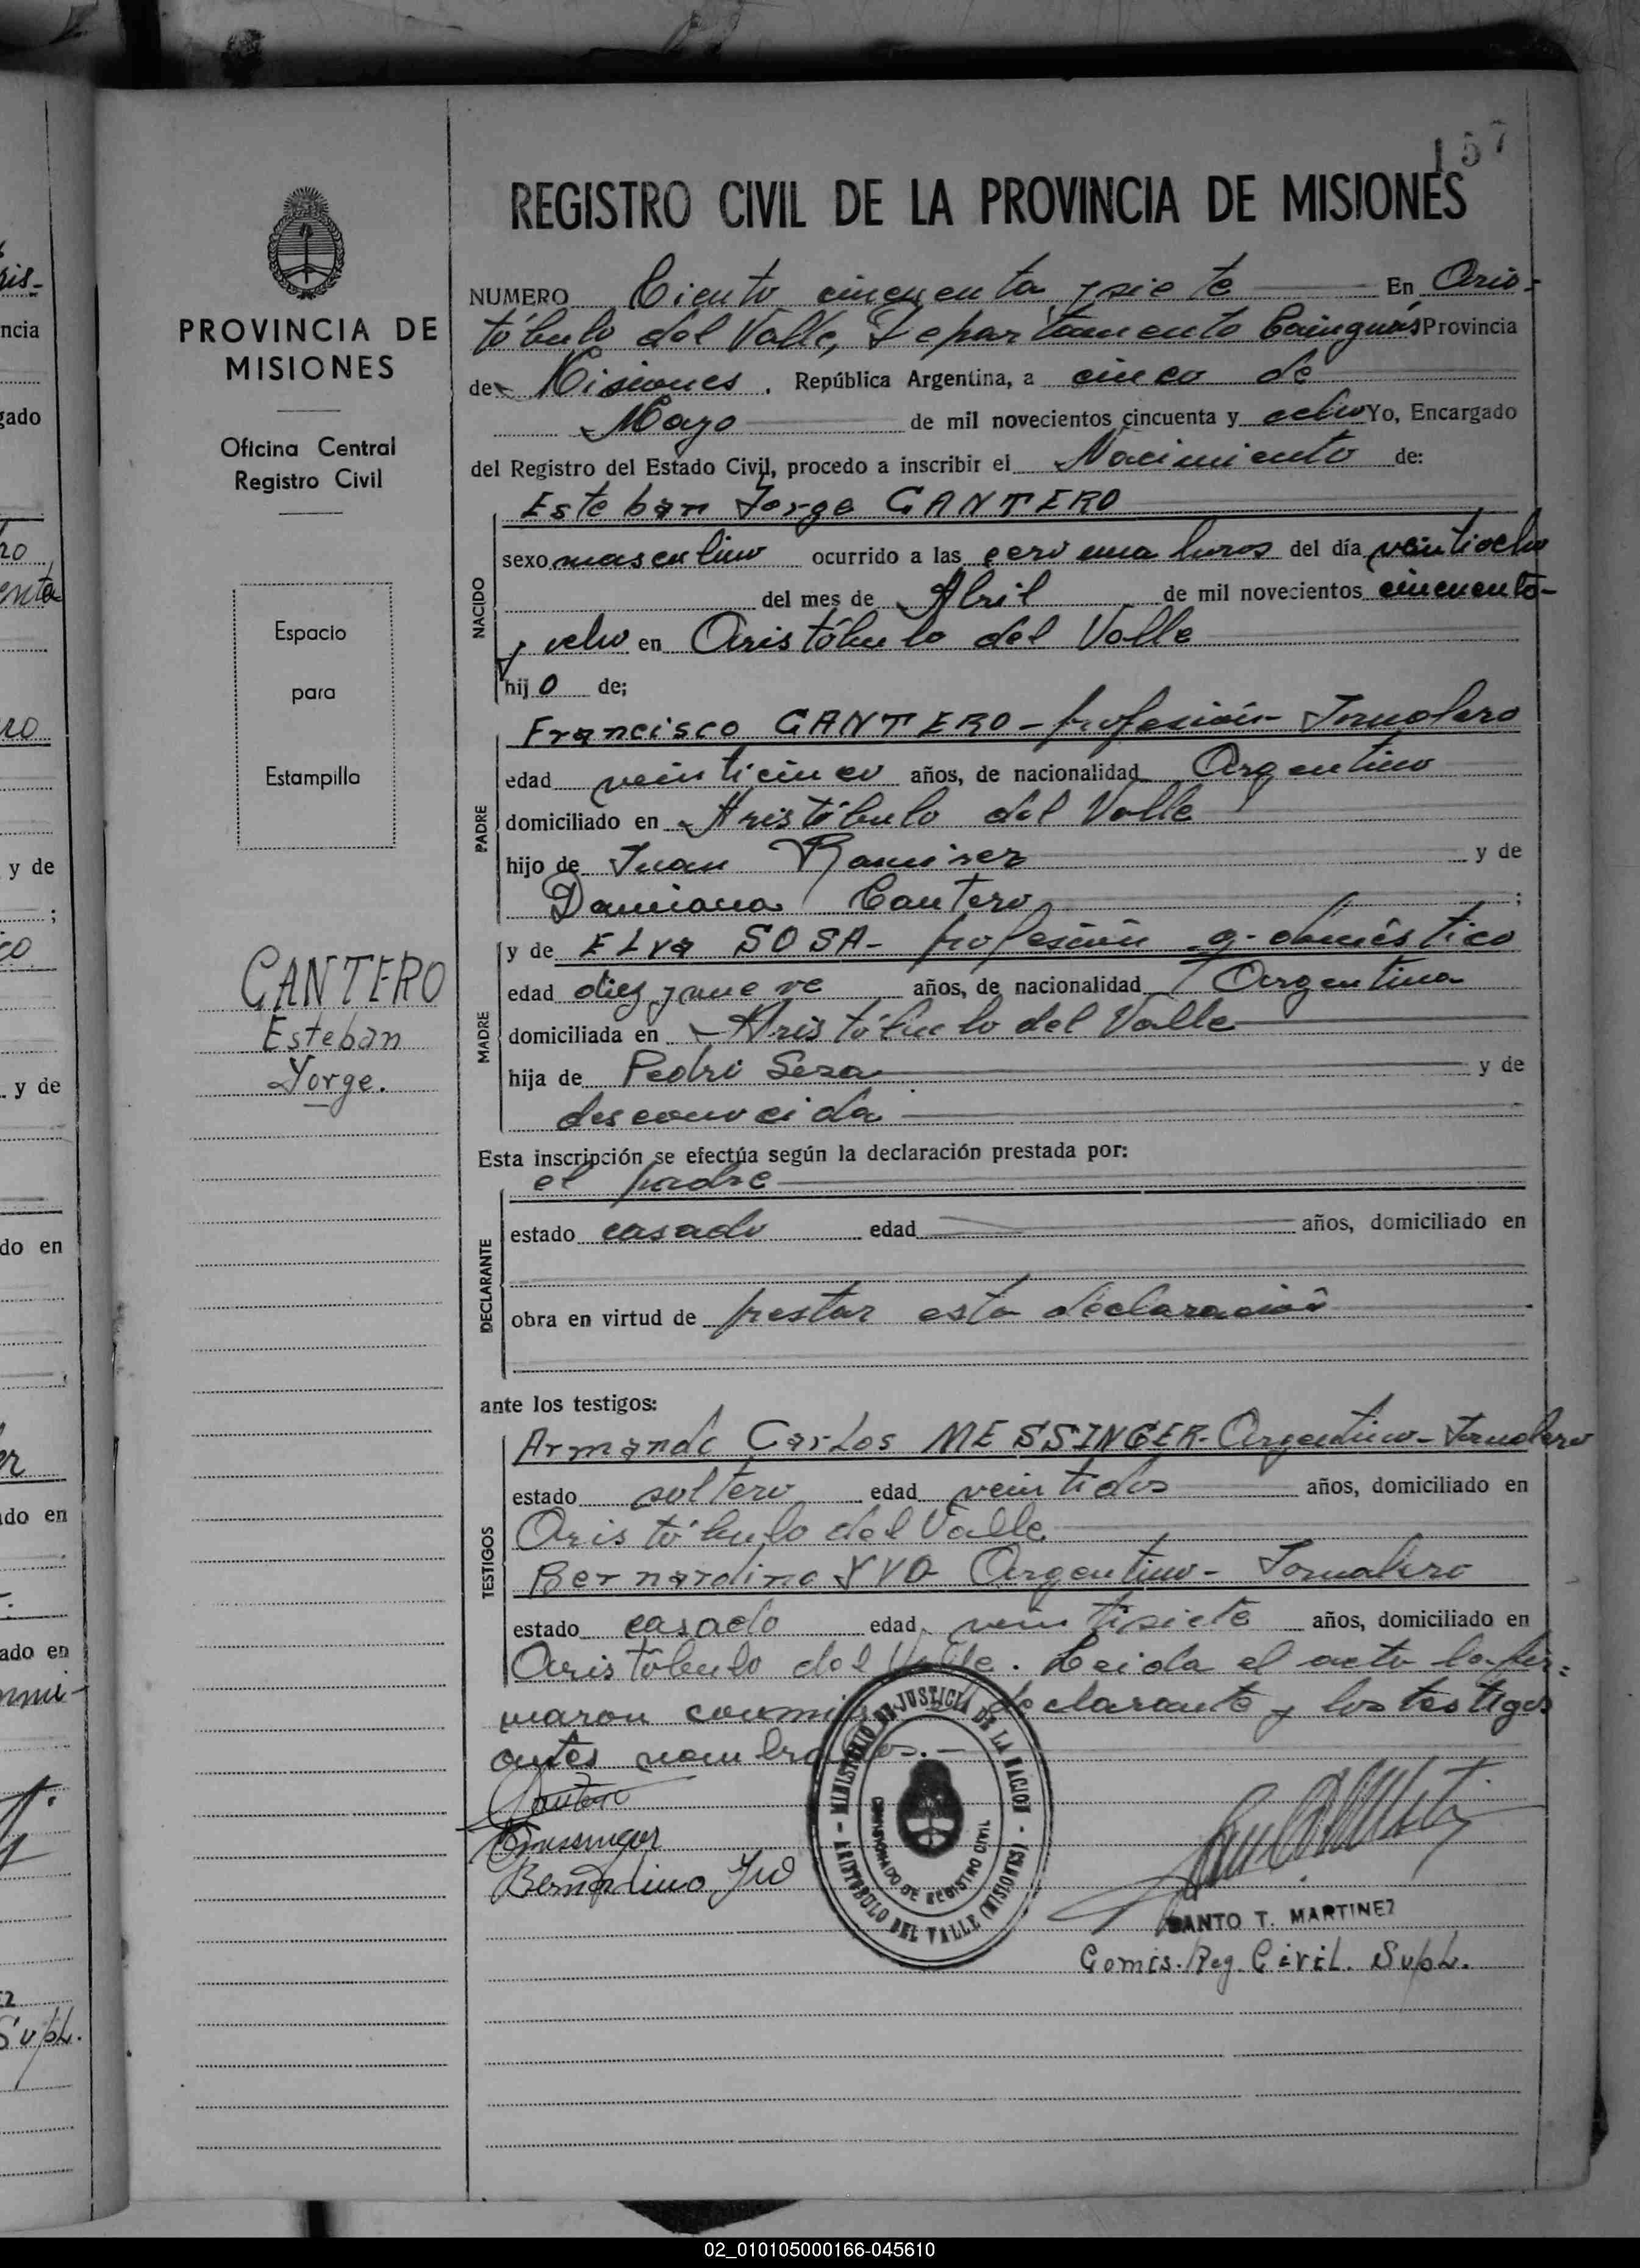 157
REGISTRO CIVIL DE LA PROVINCIA DE MISIONES
PROVINCIA DE
MISIONES
Oficina Central
Registro Civil
Espacio
para
Estampilla
CANTERO
Esteban
Jorge.
NUMERO Ciento cincuenta y siete En Aris-
tóbulo del Valle, Departamento Cainguás Provincia
de Misiones. República Argentina, a cinco de
Mayo de mil novecientos cincuenta y ocho Yo, Encargado
del Registro del Estado Civil, procedo a inscribir el Nacimiento de:
Esteban Jorge CANTERO
NACIDO
sexo masculino ocurrido a las cero una horas del día veintiocho
del mes de Abril de mil novecientos cincuenta-
y ocho en Aristóbulo del Valle
hijo de;
Francisco CANTERO - profesión - Jornalero
PADRE
edad veinticinco años, de nacionalidad Argentino
domiciliado en Aristóbulo del Valle
hijo de Juan Ramirez y de
Damiana Cantero ;
y de ELva SOSA - profesión q. doméstico
MADRE
edad diez y nueve años, de nacionalidad Argentina
domiciliada en Aristóbulo del Valle
hija de Pedro Sosa y de
desconocida
Esta inscripción se efectúa según la declaración prestada por:
el padre
DECLARANTE
estado casado edad años, domiciliado en
obra en virtud de prestar esta declaración
ante los testigos:
Armando Carlos MESSINGER - Argentino - Jornalero
TESTIGOS
estado soltero edad veintidos años, domiciliado en
Aristóbulo del Valle
Bernardino YVO Argentino - Jornalero
estado casado edad veintisiete años, domiciliado en
Aristóbulo del Valle. Leida el acta la fir=
maron conmigo declarante y los testigos
antes nombrados. -
Cantero
Bernardino Yvo
MINISTERIO DE JUSTICIA DE LA NACION
ARISTOBULO DEL VALLE (MISIONES)
REGISTRO CIVIL
SANTO T. MARTINEZ
Comis. Reg. Civil. Supl.
ris-
ncia
gado
ro
y de
;
y de
do en
er
ado en
ado en
Supl.
02_010105000166-045610